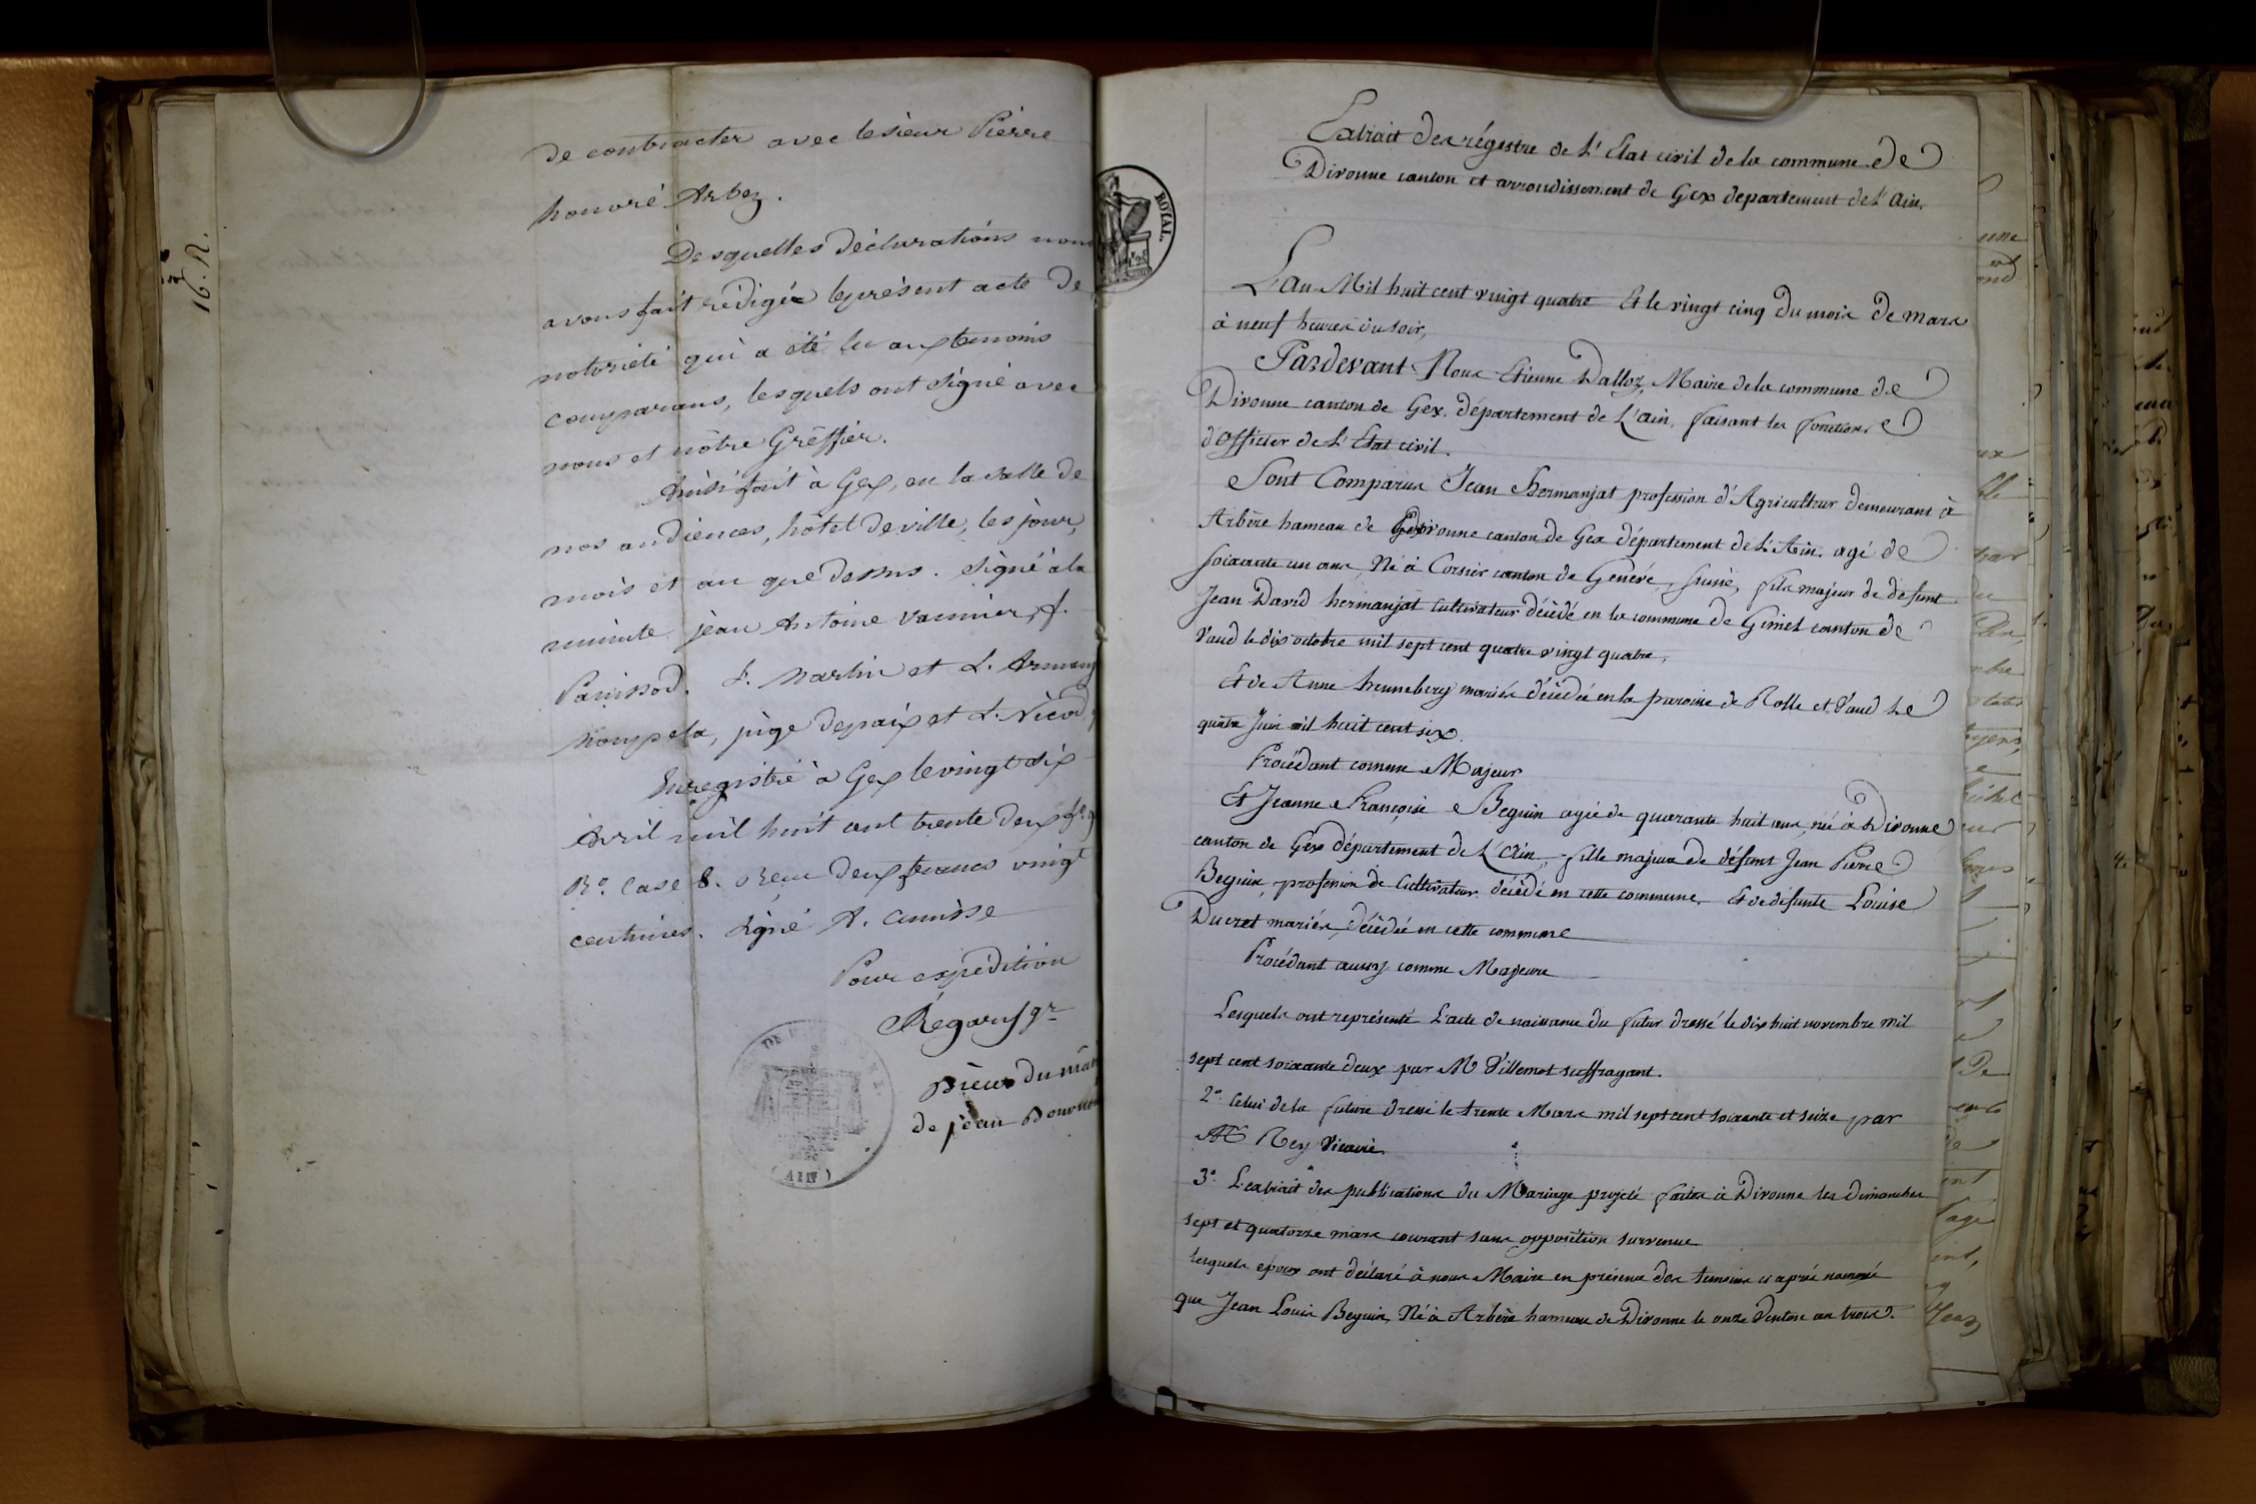 16. R.
de contracter avec le sieur Pierre
honoré Arbez.
Desquelles déclarations nous
avons fait rédiger le présent acte de
notoriété qui a été lu aux temoins
comparans, lesquels ont signé avec
nous et nôtre Gréffier.
Ainsi fait à Gex, en la salle de
nos audiences, hôtel de ville, les jour,
mois et an que dessus. Signé à la
minute jean Antoine Vannier, f.
Panissod. f. Martin et L.
juge de paix et L. Nicod
Enregistré à Gex le vingt six
Avril mil huit cent trente deux fo. 9
Ro. Case 8. Reçu deux francs vingt
centimes. Signé A.
Pour expédition
Régard gr
Pièces du mar
de jean
(AIN)
ROYAL.
Extrait des régistre de L'Etat civil de la commune de
Divonne canton et arrondissement de Gex departement de L'Ain.
L'an Mil huit cent vingt quatre Et le vingt cinq du mois de mars
à neuf heures du soir,
Pardevant Nous Etienne Dalloz, Maire de la commune de
Divonne canton de Gex, département de L'ain, faisant les fonctions
d'officier de L'Etat civil.
Sont Comparus Jean Hermanjat profession d'Agriculteur demeurant à
Arbère hameau de Divonne canton de Gex département de L'Ain. agé de
soixante un ans, Né à Corsier canton de Genève, suisse, fils majeur de defunt
Jean David hermanjat Cultivateur décédé en la commune de Gimel canton de
Vaud le dix octobre mil sept cent quatre vingt quatre,
Et de Anne henneberg mariés décédée en la paroisse de Rolle et Vaud Le
quatre Juin mil huit cent six.
Procédant comme Majeur
Et Jeanne Françoise Beguin agée de quarante huit ans, née à Divonne
canton de Gex département de L'Ain, fille majeure de défunt Jean Pierre
Beguin, profession de Cultivateur décédé en cette commune, Et de défunte Louise
Ducret mariés, décédée en cette commune
Procédant aussy comme Majeure
Lesquels ont représenté L'acte de naissance du futur dressé le dix huit novembre mil
sept cent soixante deux par Mr Villemet suffragant.
2° Celui de la future dressé le trente Mars mil sept cent soixante et seize par
Mr Rey Vicaire
3° L'extrait des publications du Mariage projeté faites à Divonne les dimanches
sept et quatorze mars courant sans opposition survenue
lesquels époux ont déclaré à nous Maire en présence des temoins cy aprés nommés
que Jean Louis Beguin, Né à Arbère hameau de Divonne le onze Ventose an trois.